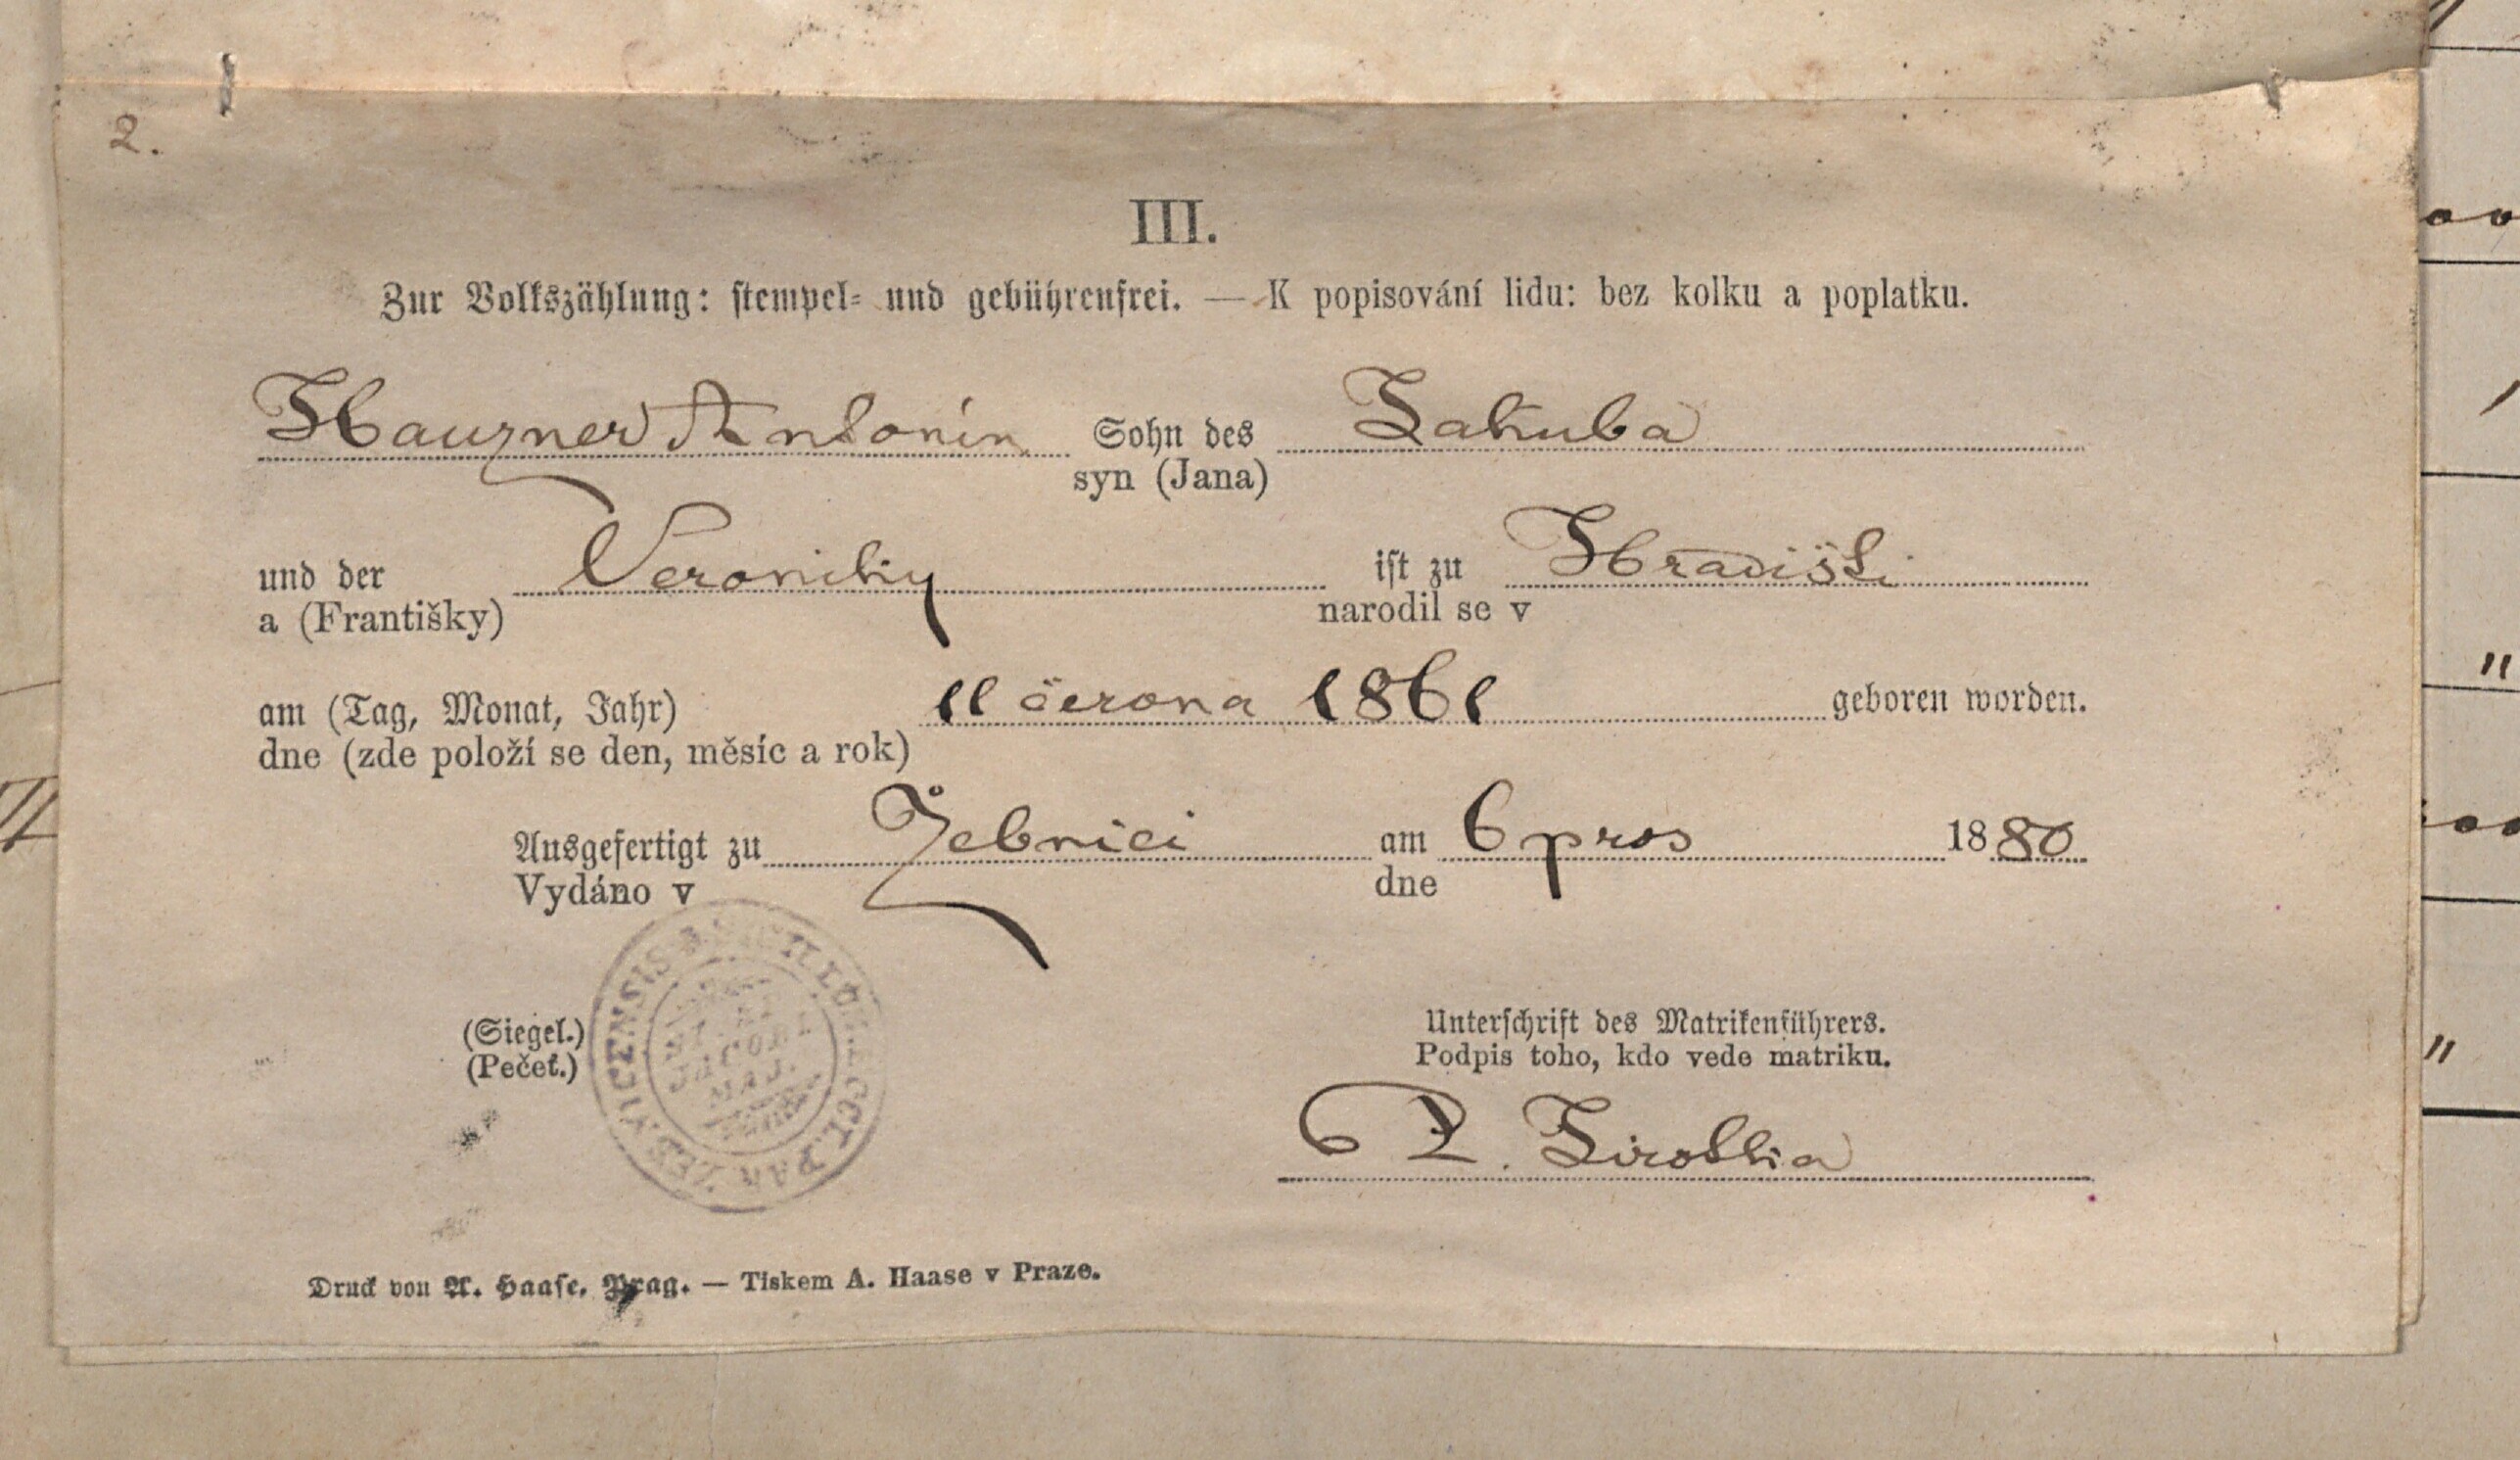 2.
III.
Zur Volkszählung: stempel- und gebührenfrei. — K popisování lidu: bez kolku a poplatku.
Hauzner Antonín Sohn des Jakuba
syn (Jana)
und der Veroniky ist zu Hradišti
a (Františky) narodil se v
am (Tag, Monat, Jahr) 11 června 1861 geboren worden.
dne (zde položí se den, měsíc a rok)
Ausgefertigt zu Žebnici am 6 pros 1880
Vydáno v dne
(Siegel.)
(Pečeť.)
JACOBI
MAJ.
Unterschrift des Matrikenführers.
Podpis toho, kdo vede matriku.
P. Jirotka
Druck von A. Haase, Prag. — Tiskem A. Haase v Praze.